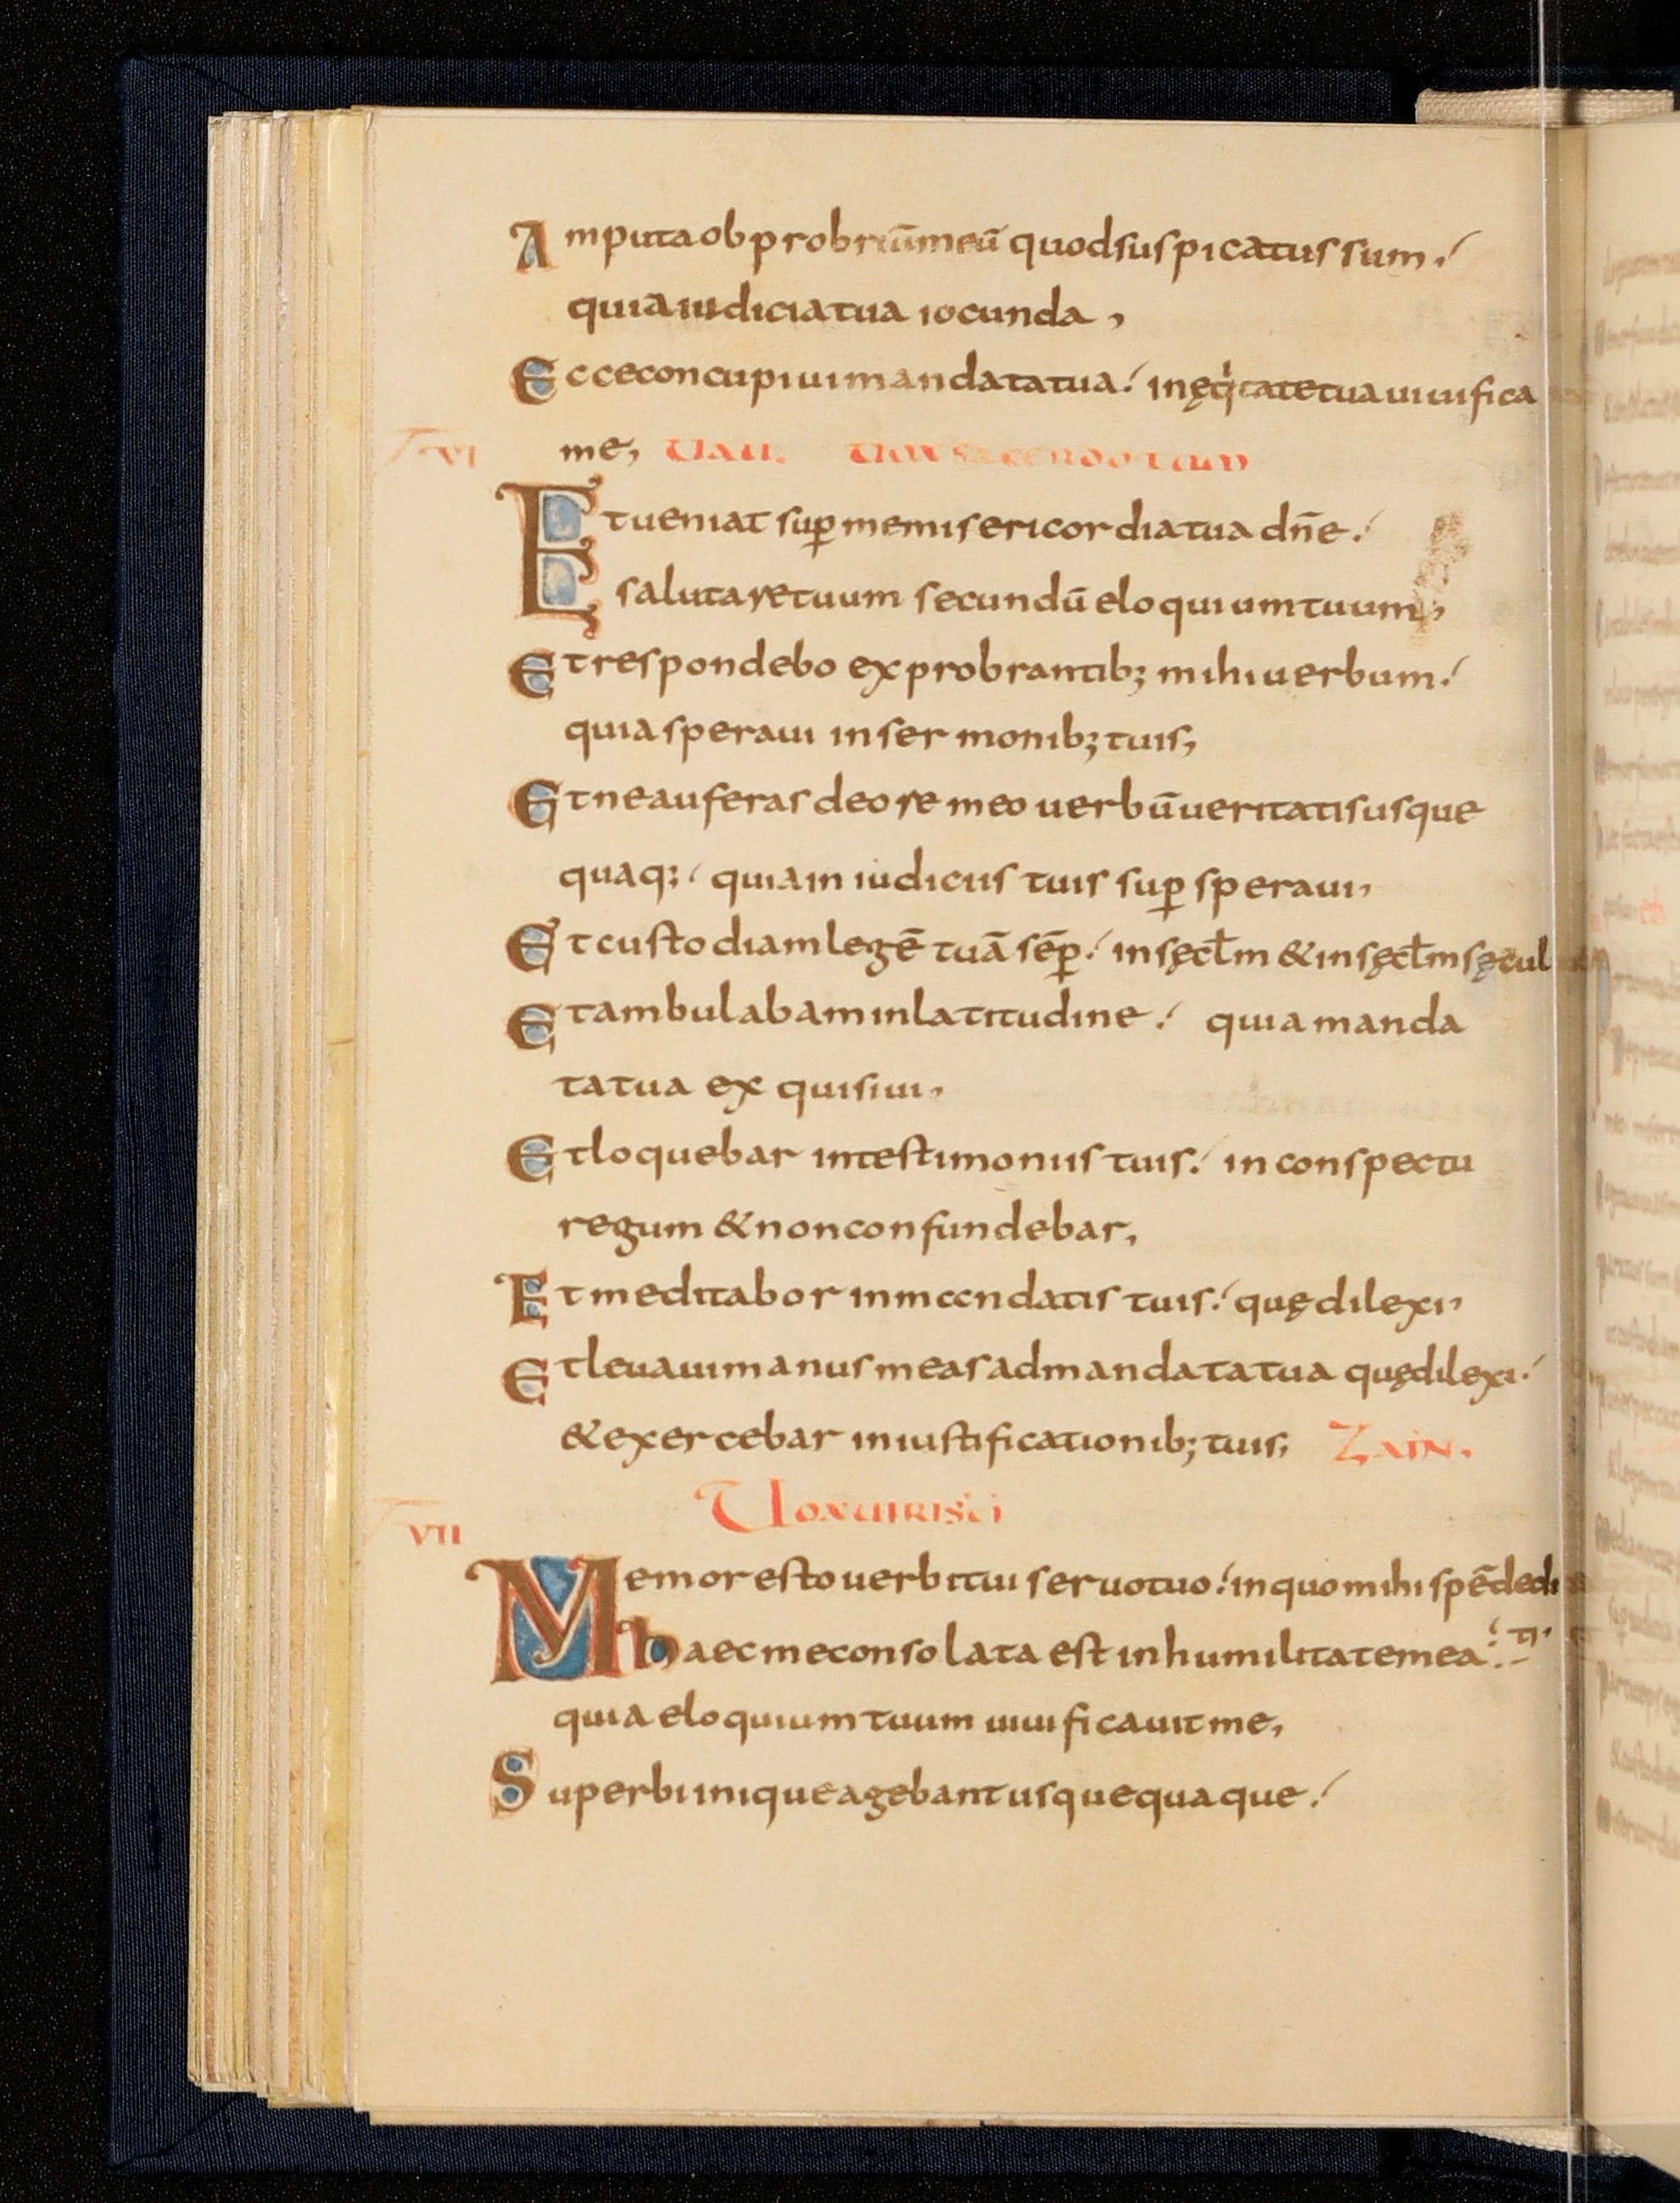 Amputa obprobriū meū quod suspicatus sum.
quia iudicia tua iocunda,
Ecce concupiui mandata tua: in ęq̇itate tua uiuifica
VI me, UAU. UOX SACERDOTUM
Et ueniat sup̱ me misericordia tua dn̄e:
salutare tuum secundū eloquium tuum,
Et respondebo exprobrantib; mihi uerbum:
quia speraui in sermonib; tuis,
Et ne auferas de ore meo uerbū ueritatis usque
quaq;: quia in iudiciis tuis sup̱ speraui,
Et custodiam legē tuā sēp̱: in sęcl̄m & in sęcl̄m sęcul
Et ambulabam in latitudine: quia manda
ta tua exquisiui,
Et loquebar in testimoniis tuis: in conspectu
regum & non confundebar,
Et meditabor in mandatis tuis: quę dilexi,
Et leuaui manus meas ad mandata tua quę dilexi:
& exercebar in iustificationib; tuis, ZAIN.
UOX UIRI SCI
VII
Memor esto uerbi tui seruo tuo: in quo mihi spē dedi
haec me consolata est in humilitate mea: ti
quia eloquium tuum uiuificauit me,
Superbi inique agebant usquequaque: